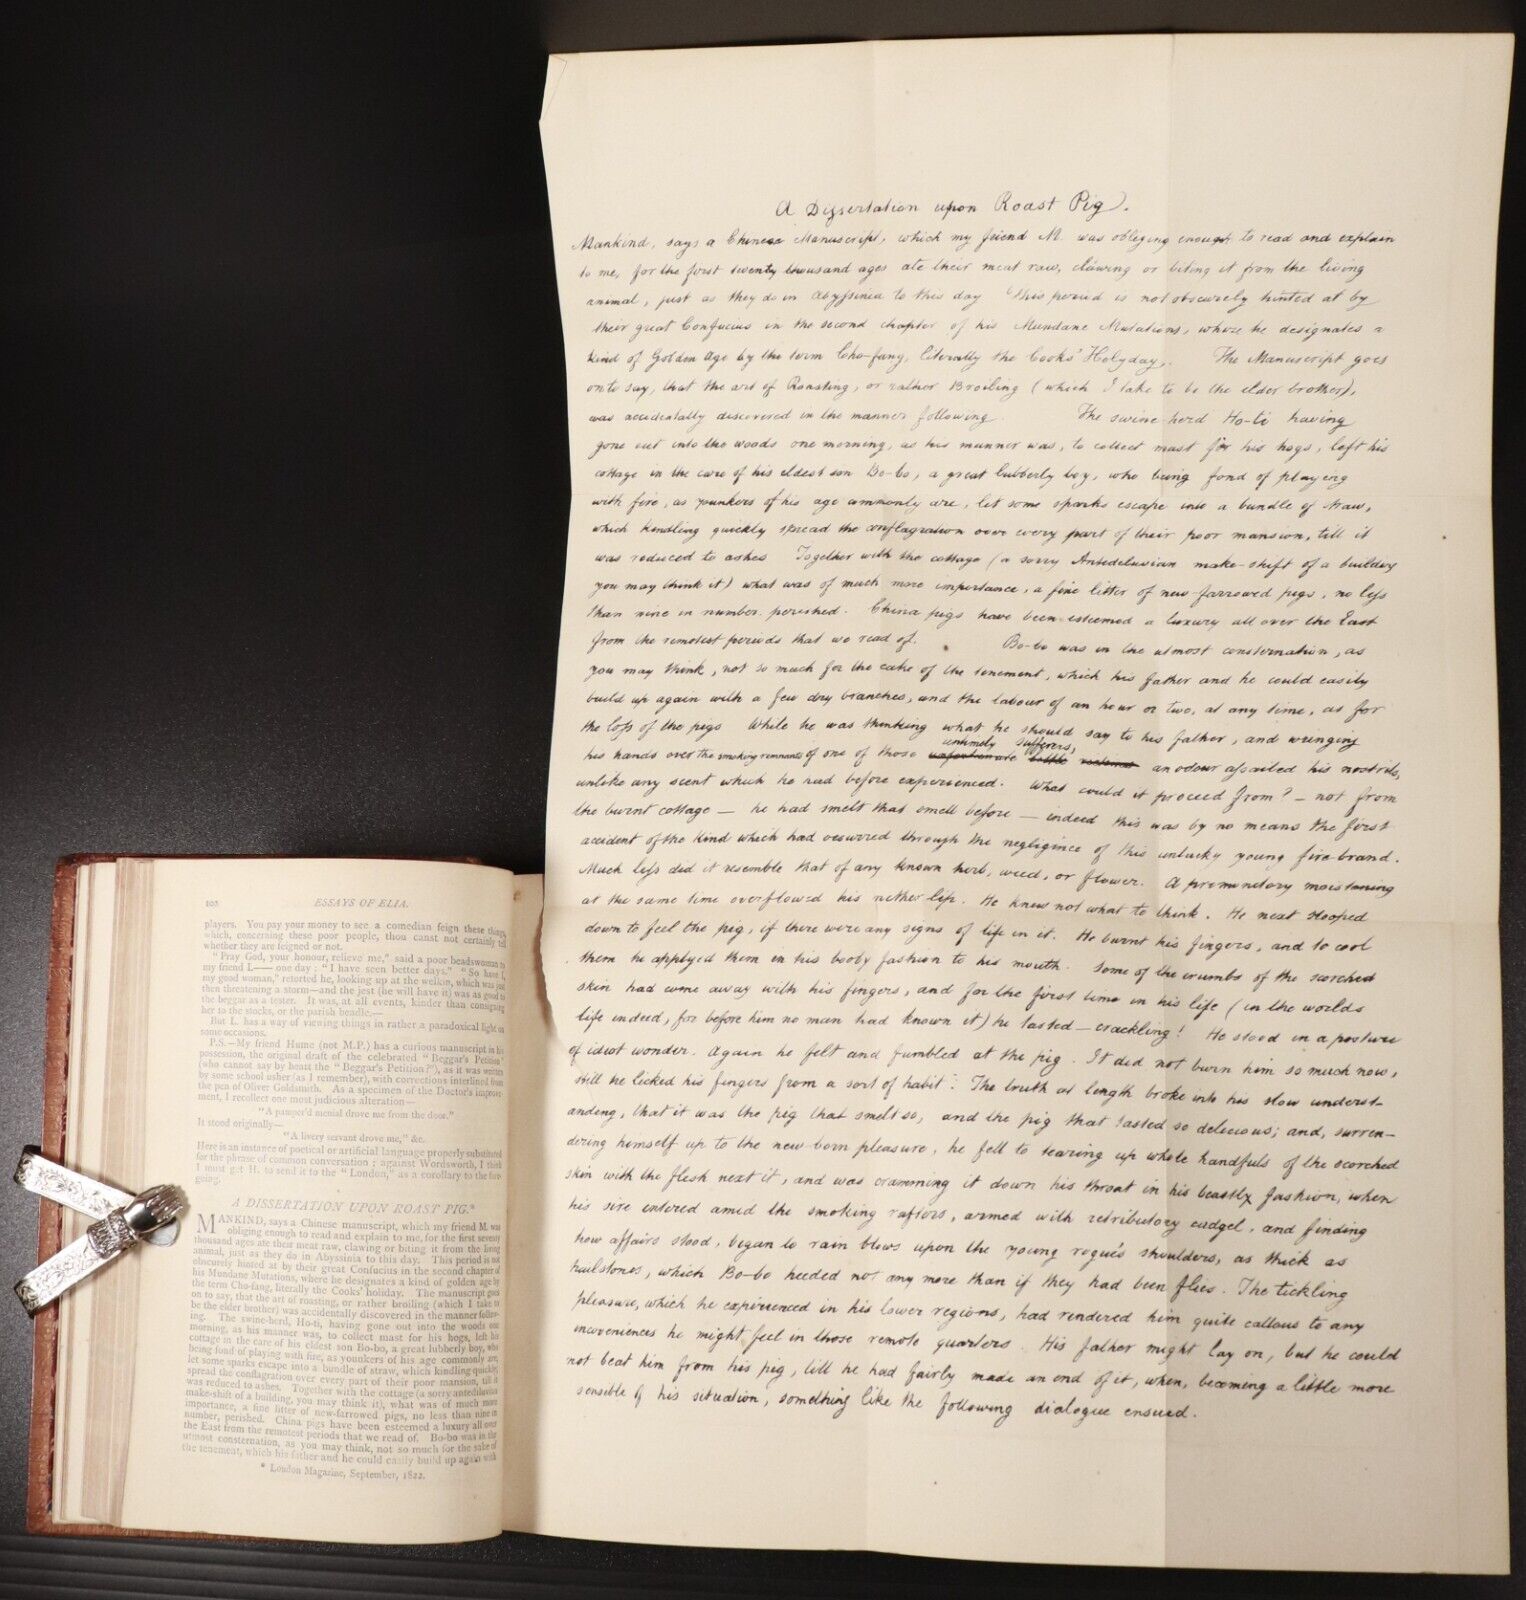 102 ESSAYS OF ELIA.
players. You pay your money to see a comedian feign these things,
which, concerning these poor people, thou canst not certainly tell
whether they are feigned or not.
"Pray God, your honour, relieve me," said a poor beadswoman to
my friend L—— one day: "I have seen better days." "So have I,
my good woman," retorted he, looking up at the welkin, which was just
then threatening a storm—and the jest (he will have it) was as good to
the beggar as a tester. It was, at all events, kinder than consigning
her to the stocks, or the parish beadle.—
But L. has a way of viewing things in rather a paradoxical light on
some occasions.
P.S.—My friend Hume (not M.P.) has a curious manuscript in his
possession, the original draft of the celebrated "Beggar's Petition"
(who cannot say by heart the "Beggar's Petition?"), as it was written
by some school usher (as I remember), with corrections interlined from
the pen of Oliver Goldsmith. As a specimen of the Doctor's improve-
ment, I recollect one most judicious alteration—
"A pamper'd menial drove me from the door."
It stood originally—
"A livery servant drove me," &c.
Here is an instance of poetical or artificial language properly substituted
for the phrase of common conversation; against Wordsworth, I think
I must get H. to send it to the "London," as a corollary to the fore-
going.
A DISSERTATION UPON ROAST PIG.*
MANKIND, says a Chinese manuscript, which my friend M. was
obliging enough to read and explain to me, for the first seventy
thousand ages ate their meat raw, clawing or biting it from the living
animal, just as they do in Abyssinia to this day. This period is not
obscurely hinted at by their great Confucius in the second chapter of
his Mundane Mutations, where he designates a kind of golden age by
the term Cho-fang, literally the Cooks' holiday. The manuscript goes
on to say, that the art of roasting, or rather broiling (which I take to
be the elder brother) was accidentally discovered in the manner follow-
ing. The swine-herd, Ho-ti, having gone out into the woods one
morning, as his manner was, to collect mast for his hogs, left his
cottage in the care of his eldest son Bo-bo, a great lubberly boy, who
being fond of playing with fire, as younkers of his age commonly are,
let some sparks escape into a bundle of straw, which kindling quickly,
spread the conflagration over every part of their poor mansion, till it
was reduced to ashes. Together with the cottage (a sorry antediluvian
make-shift of a building, you may think it), what was of much more
importance, a fine litter of new-farrowed pigs, no less than nine in
number, perished. China pigs have been esteemed a luxury all over
the East from the remotest periods that we read of. Bo-bo was in the
utmost consternation, as you may think, not so much for the sake of
the tenement, which his father and he could easily build up again with
* London Magazine, September, 1822.
A Dissertation upon Roast Pig.
Mankind, says a Chinese Manuscript, which my friend M. was obliging enough to read and explain
to me, for the first seventy thousand ages ate their meat raw, clawing or biting it from the living
animal, just as they do in Abyssinia to this day This period is not obscurely hinted at by
their great Confucius in the second chapter of his Mundane Mutations, where he designates a
kind of Golden Age by the term Cho-fang, literally the Cooks' Holyday. The Manuscript goes
on to say, that the art of Roasting, or rather Broiling (which I take to be the elder brother),
was accidentally discovered in the manner following. The swine-herd Ho-ti having
gone out into the woods one morning, as his manner was, to collect mast for his hogs, left his
cottage in the care of his eldest son Bo-bo, a great lubberly boy, who being fond of playing
with fire, as younkers of his age commonly are, let some sparks escape into a bundle of straw,
which kindling quickly spread the conflagration over every part of their poor mansion, till it
was reduced to ashes Together with the cottage (a sorry Antedeluvian make-shift of a building
you may think it) what was of much more importance, a fine litter of new-farrowed pigs, no less
than nine in number perished. China pigs have been esteemed a luxury all over the East
from the remotest periods that we read of. Bo-bo was in the utmost consternation, as
you may think, not so much for the sake of the tenement, which his father and he could easily
build up again with a few dry branches, and the labour of an hour or two, at any time, as for
the loss of the pigs While he was thinking what he should say to his father, and wringing
untimely sufferers,
his hands over the smoking remnants of one of those unfortunate little an odour assailed his nostrils,
unlike any scent which he had before experienced. What could it proceed from? — not from
the burnt cottage — he had smelt that smell before — indeed this was by no means the first
accident of the kind which had occurred through the negligince of this unlucky young fire-brand.
Much less did it resemble that of any known herb, weed, or flower. A premonitory moistening
at the same time overflowed his nether lip. He knew not what to think. He next stooped
down to feel the pig, if there were any signs of life in it. He burnt his fingers, and to cool
them he applyed them in his booby fashion to his mouth. Some of the crumbs of the scorched
skin had come away with his fingers, and for the first time in his life (in the worlds
life indeed, for before him no man had known it) he tasted — crackling! He stood in a posture
of idiot wonder. Again he felt and fumbled at the pig. It did not burn him so much now,
still he licked his fingers from a sort of habit. The truth at length broke into his slow underst-
anding, that it was the pig that smelt so, and the pig that tasted so delicious; and, surren-
dering himself up to the new-born pleasure, he fell to tearing up whole handfuls of the scorched
skin with the flesh next it, and was cramming it down his throat in his beastly fashion, when
his sire entered amid the smoking rafters, armed with retributory cudgel, and finding
how affairs stood, began to rain blows upon the young rogue's shoulders, as thick as
hailstones, which Bo-bo heeded not any more than if they had been flies. The tickling
pleasure, which he experienced in his lower regions, had rendered him quite callous to any
inconveniences he might feel in those remote quarters. His father might lay on, but he could
not beat him from his pig, till he had fairly made an end of it, when, becoming a little more
sensible of his situation, something like the following dialogue ensued.